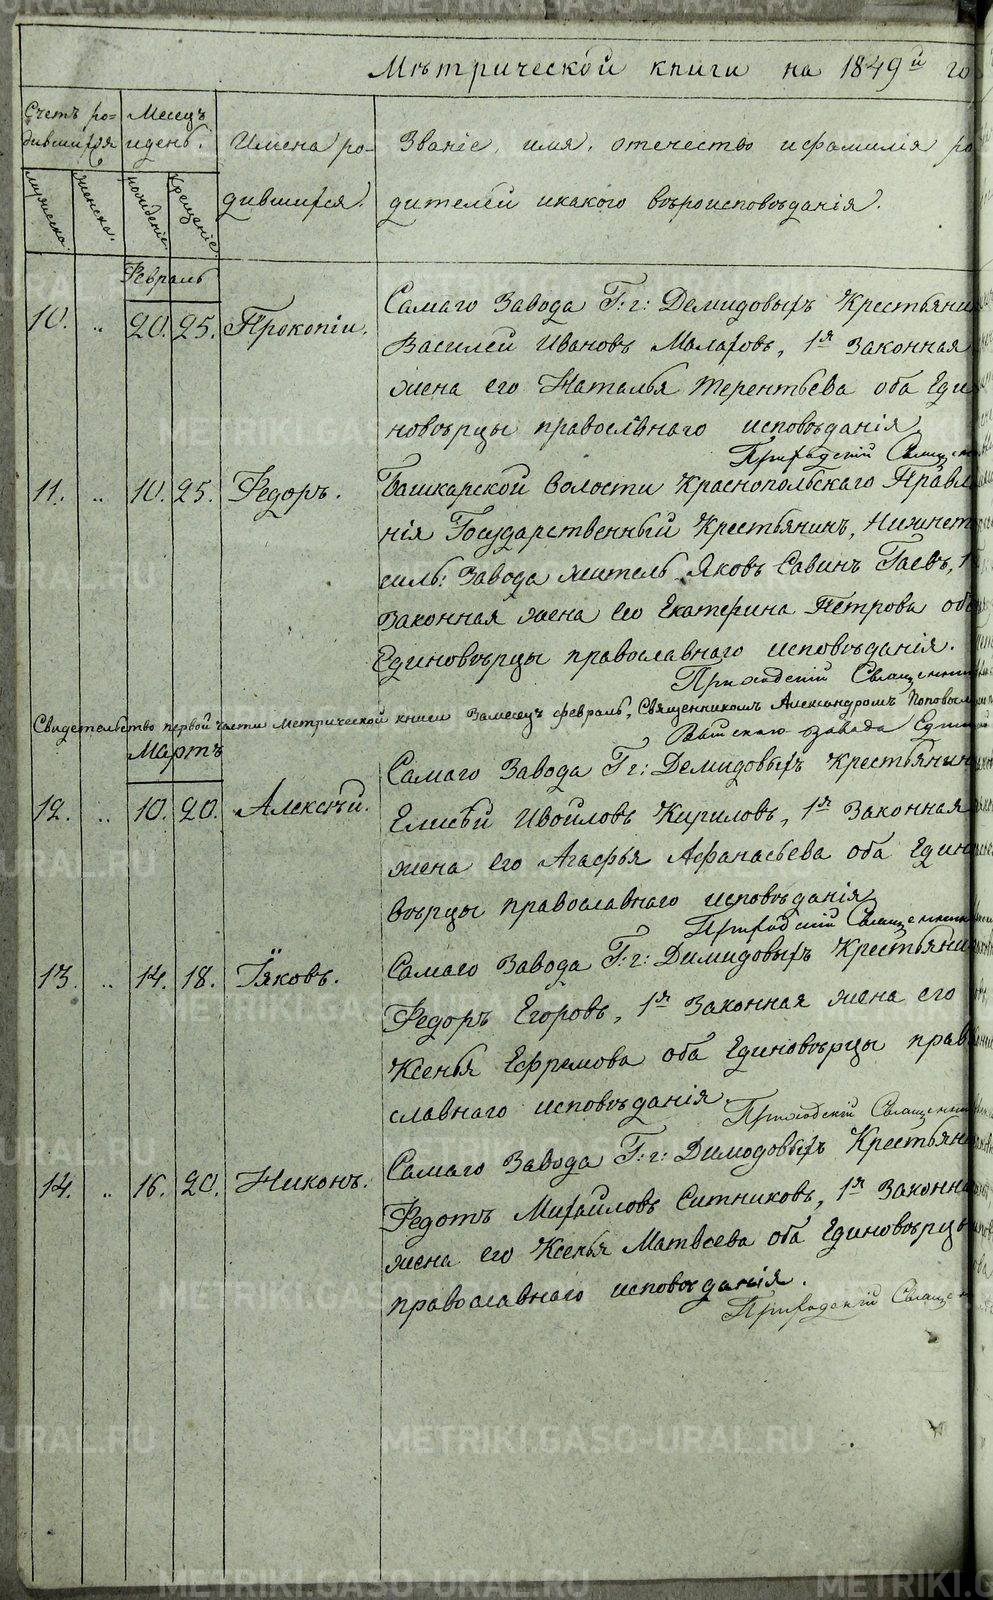 Метрической книги на 1849й го
Счетъ ро-
дившихся
Месецъ
и день.
Имена ро-
дившихся.
Званіе, имя, отечество и фамилія ро
дителей и какого вѣроисповѣданія.
мужеска.
женска.
рожденіе.
крещеніе.
Февраль
10. „ 20. 25. Прокопіи.
Самаго Завода Г: г: Демидовыхъ Крестьянин
Василей Ивановъ Маларовъ, 1я Законная
жена его Наталья Терентьева оба Еди
новѣрцы православнаго исповѣданія
Приходскій Священ
11. „ 10. 25. Федоръ.
Башкарской волости Краснопольскаго Правле
нія Государственный Крестьянинъ, Нижнет
силь: Завода житель Яковъ Савинъ Гаевъ, 1
Законная жена его Екатерина Петрова оба
Единовѣрцы православнаго исповѣданія.
Приходскій Священн
Свидетельство первой части метрической книги за месецъ февраль, Священникомъ Александромъ Поповым
Выйскаго завода Един
Мартъ
12. „ 10. 20. Алексѣй.
Самаго Завода Г: г: Демидовыхъ Крестьянин
Елисѣй Ивойловъ Кириловъ, 1я Законная
жена его Агафья Афанасьева оба Едино
вѣрцы православнаго исповѣданія
Приходскій Священник
13. „ 14. 18. Їяковъ.
Самаго Завода Г: г: Димидовыхъ Крестьянин
Федоръ Егоровъ, 1я Законная жена его
Ксенья Ефремова оба Единовѣрцы право
славнаго исповѣданія.
Приходскій Священник
14. „ 16. 20. Никонъ.
Самаго Завода Г: г: Димодовыхъ Крестьяни
Федотъ Михайловъ Ситниковъ, 1я Законна
жена его Ксенья Матвеева оба Единовѣрцы
православнаго исповѣданія.
Приходскій Священ
METRIKI.GASO-URAL.RU